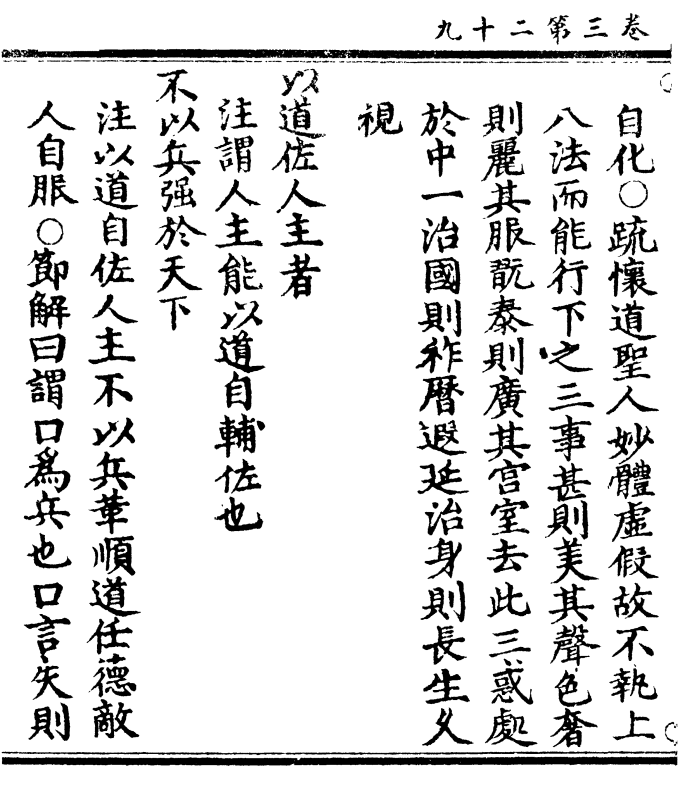 卷三第二十九
自化○疏懷道聖人妙體虛假故不執上
八法而能行下之三事甚則美其聲色奢
則麗其服翫泰則廣其宮室去此三惑處
於中一治國則祚曆遐延治身則長生久
視
以道佐人主者
注謂人主能以道自輔佐也
不以兵强於天下
注以道自佐人主不以兵革順道任德敵
人自服○節解曰謂口爲兵也口言失則